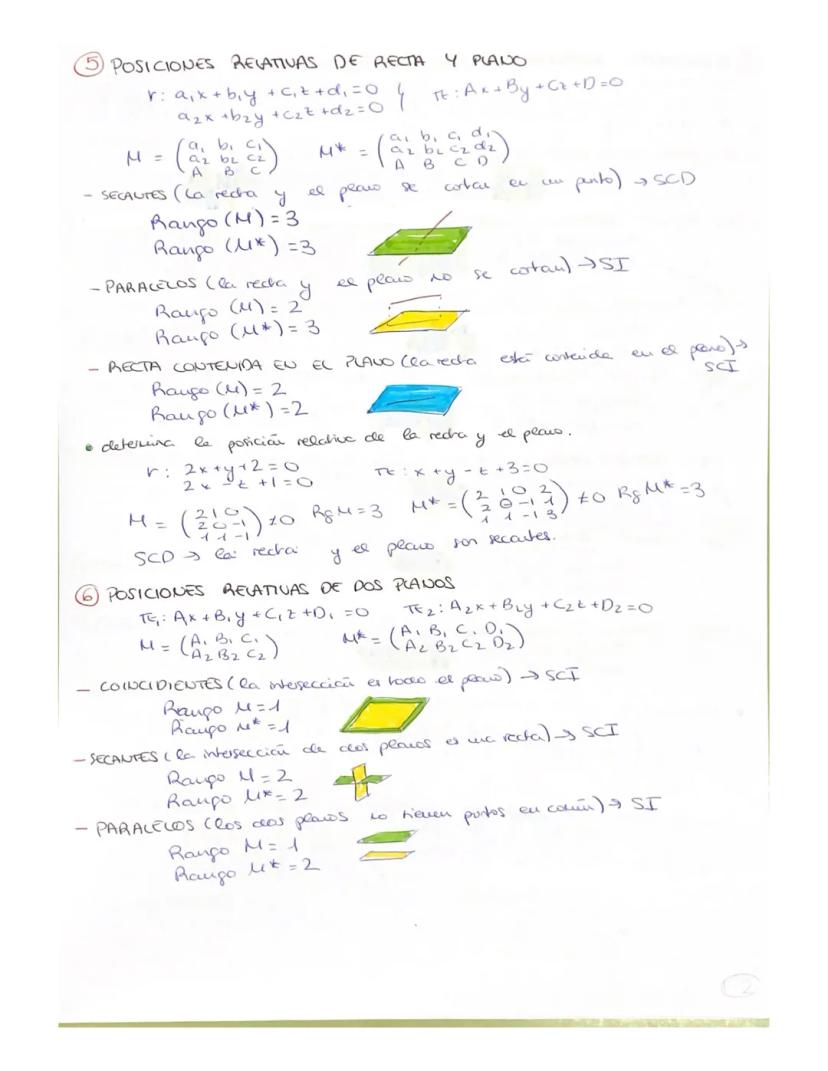 5 POSICIONES RELATIVAS DE RECTA Y PLANO
r: a₁x + b₁y + c₁z + d₁ = 0 } π: Ax + By + Cz + D = 0
a₂x + b₂y + c₂z + d₂ = 0
M = (a₁ b₁ c₁ M* = (a₁ b₁ c₁ d₁
a₂ b₂ c₂ a₂ b₂ c₂ d₂
A B C) A B C D)
- SECANTES (La recta y el plano se cortan en un punto) → SCD
Rango (M) = 3
Rango (M*) = 3
- PARALELOS (la recta y el plano no se cortan) → SI
Rango (M) = 2
Rango (M*) = 3
- RECTA CONTENIDA EN EL PLANO (La recta está contenida en el plano) →
SCI
Rango (M) = 2
Rango (M*) = 2
• determina la posición relativa de la recta y el plano.
r: 2x + y + 2 = 0 π: x + y - z + 3 = 0
2x - z + 1 = 0
M = (2 1 0 M* = (2 1 0 2
2 0 -1 ≠ 0 Rg M = 3 2 0 -1 1 ≠ 0 Rg M* = 3
1 1 -1) 1 1 -1 3)
SCD → la recta y el plano son secantes.
6 POSICIONES RELATIVAS DE DOS PLANOS
π₁: Ax + B₁y + C₁z + D₁ = 0 π₂: A₂x + B₂y + C₂z + D₂ = 0
M = (A₁ B₁ C₁ M* = (A₁ B₁ C₁ D₁
A₂ B₂ C₂) A₂ B₂ C₂ D₂)
- COINCIDIENTES (la intersección es todo el plano) → SCI
Rango M = 1
Rango M* = 1
- SECANTES (la intersección de dos planos es una recta) → SCI
Rango M = 2
Rango M* = 2
- PARALELOS (los dos planos no tienen puntos en común) → SI
Rango M = 1
Rango M* = 2
2